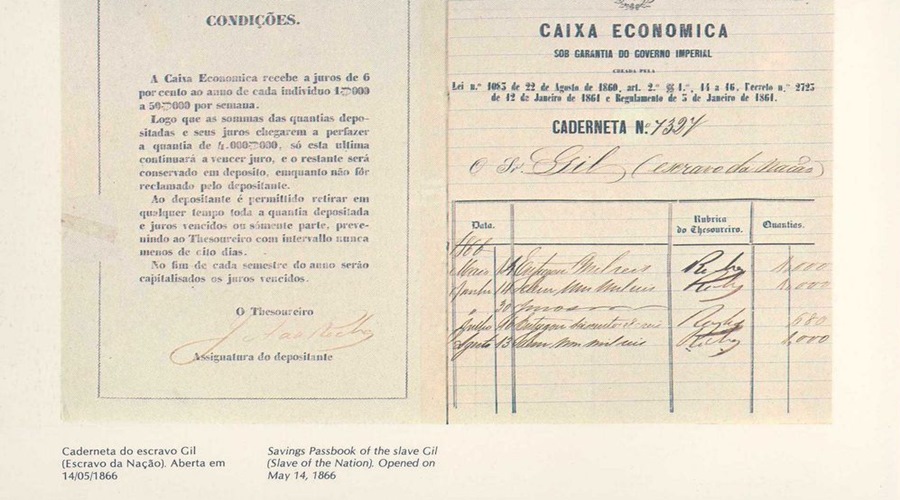 CONDIÇÕES.
A Caixa Economica recebe a juros de 6
por cento ao anno de cada individuo 1$000
a 50$000 por semana.
Logo que as sommas das quantias depo-
sitadas e seus juros chegarem a perfazer
a quantia de 4.000$000, só esta ultima
continuará a vencer juro, e o restante será
conservado em deposito, emquanto não fôr
reclamado pelo depositante.
Ao depositante é permittido retirar em
qualquer tempo toda a quantia depositada
e juros vencidos ou sómente parte, preve-
nindo ao Thesoureiro com intervallo nunca
menos de oito dias.
No fim de cada semestre do anno serão
capitalisados os juros vencidos.
O Thesoureiro
Assignatura do depositante
CAIXA ECONOMICA
SOB GARANTIA DO GOVERNO IMPERIAL
CREADA PELA
Lei n.º 1083 de 22 de Agosto de 1860, art. 2.º §§ 1.º, 14 a 16, Decreto n.º 2723
de 12 de Janeiro de 1861 e Regulamento de 5 de Janeiro de 1861.
CADERNETA N.º 7327
O Sr. Gil (escravo da Nação)
Data. Rubrica do Thesoureiro. Quantias.
1866
Maio 14 mil reis 1,000
Junho 1,000
30 juros
Julho 16 680
Agosto 13 mil reis 1,000
Caderneta do escravo Gil
(Escravo da Nação). Aberta em
14/05/1866
Savings Passbook of the slave Gil
(Slave of the Nation). Opened on
May 14, 1866